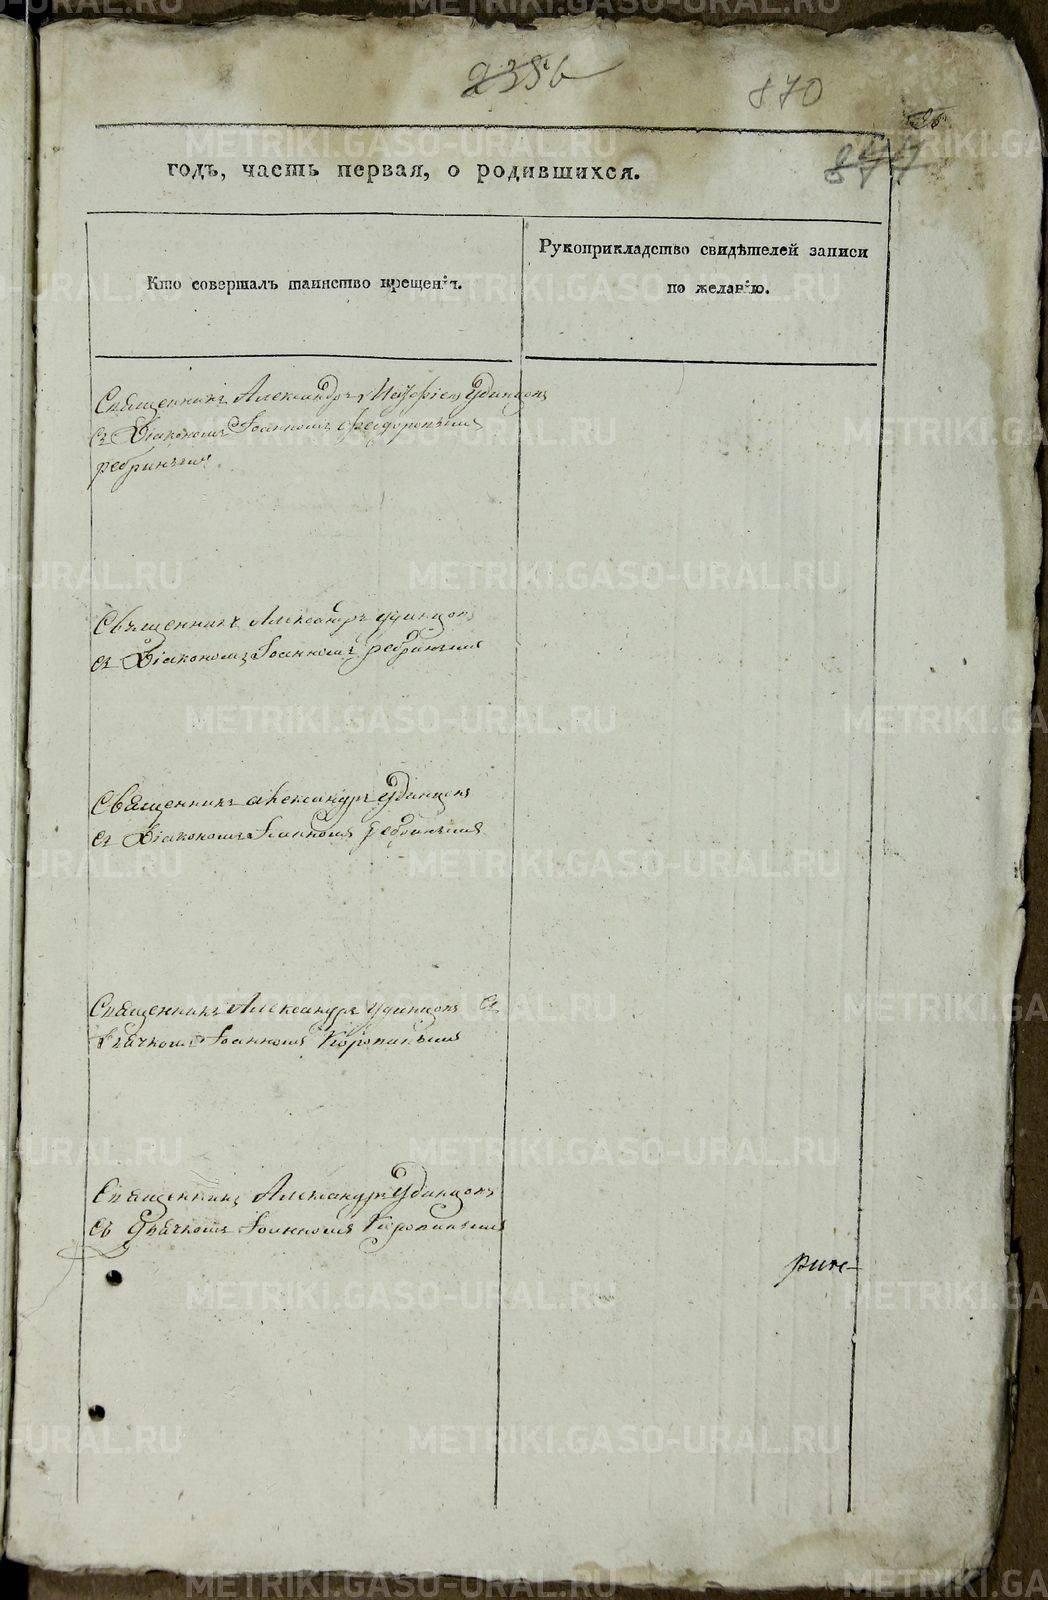 2356
870
877
годъ, часть первая, о родившихся.
Кто совершалъ таинство крещенія.
Рукоприкладство свидѣтелей записи
по желанію.
Священникъ Александръ Удинцовъ
съ Діакономъ Іоанномъ Феодоровымъ
Ребринымъ
Священникъ Александръ Удинцовъ
съ Діакономъ Іоанномъ Ребринымъ
Священникъ Александръ Удинцовъ
съ Діакономъ Іоанномъ Ребринымъ
Священникъ Александръ Удинцовъ съ
Дьячкомъ Іоанномъ
Священникъ Александръ Удинцовъ
съ Дьячкомъ Іоанномъ
METRIKI.GASO-URAL.RU